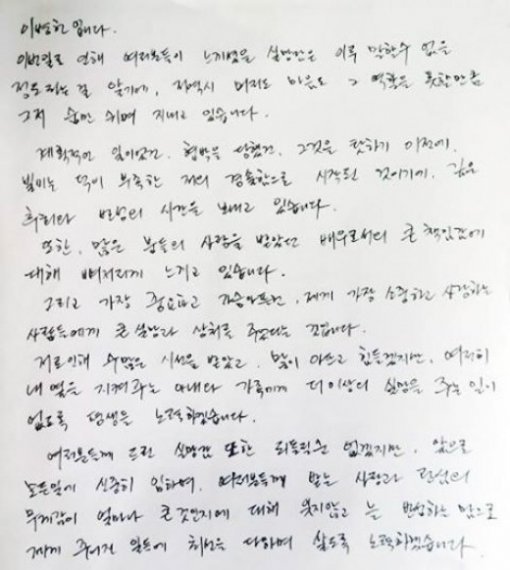 이병헌 입니다.
이번일로 인해 여러분들이 느끼셨을 실망감은 이루 말할수 없을
정도라는걸 알기에, 저역시 머리도 마음도 그 역할을 못할만큼
그저 숨만 쉬며 지내고 있습니다.
계획적인 일이었건, 협박을 당했건, 그것을 탓하기 이전에,
빌미는 덕이 부족한 저의 경솔함으로 시작된 것이기에, 깊은
후회와 반성의 시간을 보내고 있습니다.
또한, 많은 분들의 사랑을 받았던 배우로서의 큰 책임감에
대해 뼈저리게 느끼고 있습니다.
그리고 가장 중요하고 가슴아프, 제게 가장 소중하고 사랑하는
사람들에게 큰 실망과 상처를 주었다는 것입니다.
저로인해 수많은 시선을 받았고, 많이 아프고 힘든겠지만, 여전히
내 옆을 지켜주는 아내와 가족에게 더이상의 실망을 주는 일이
없도록 평생을 노력하겠습니다.
여러분들께 드린 실망감 또한 되돌릴순 없겠지만, 앞으로
모든일에 신중히 임하며, 여러분들께 받는 사랑과 관심의
무게감이 얼마나 큰 것인지에 대해 잊지않고 늘 반성하는 맘으로
제게 주어진 일들에 최선을 다하며 살도록 노력하겠습니다.